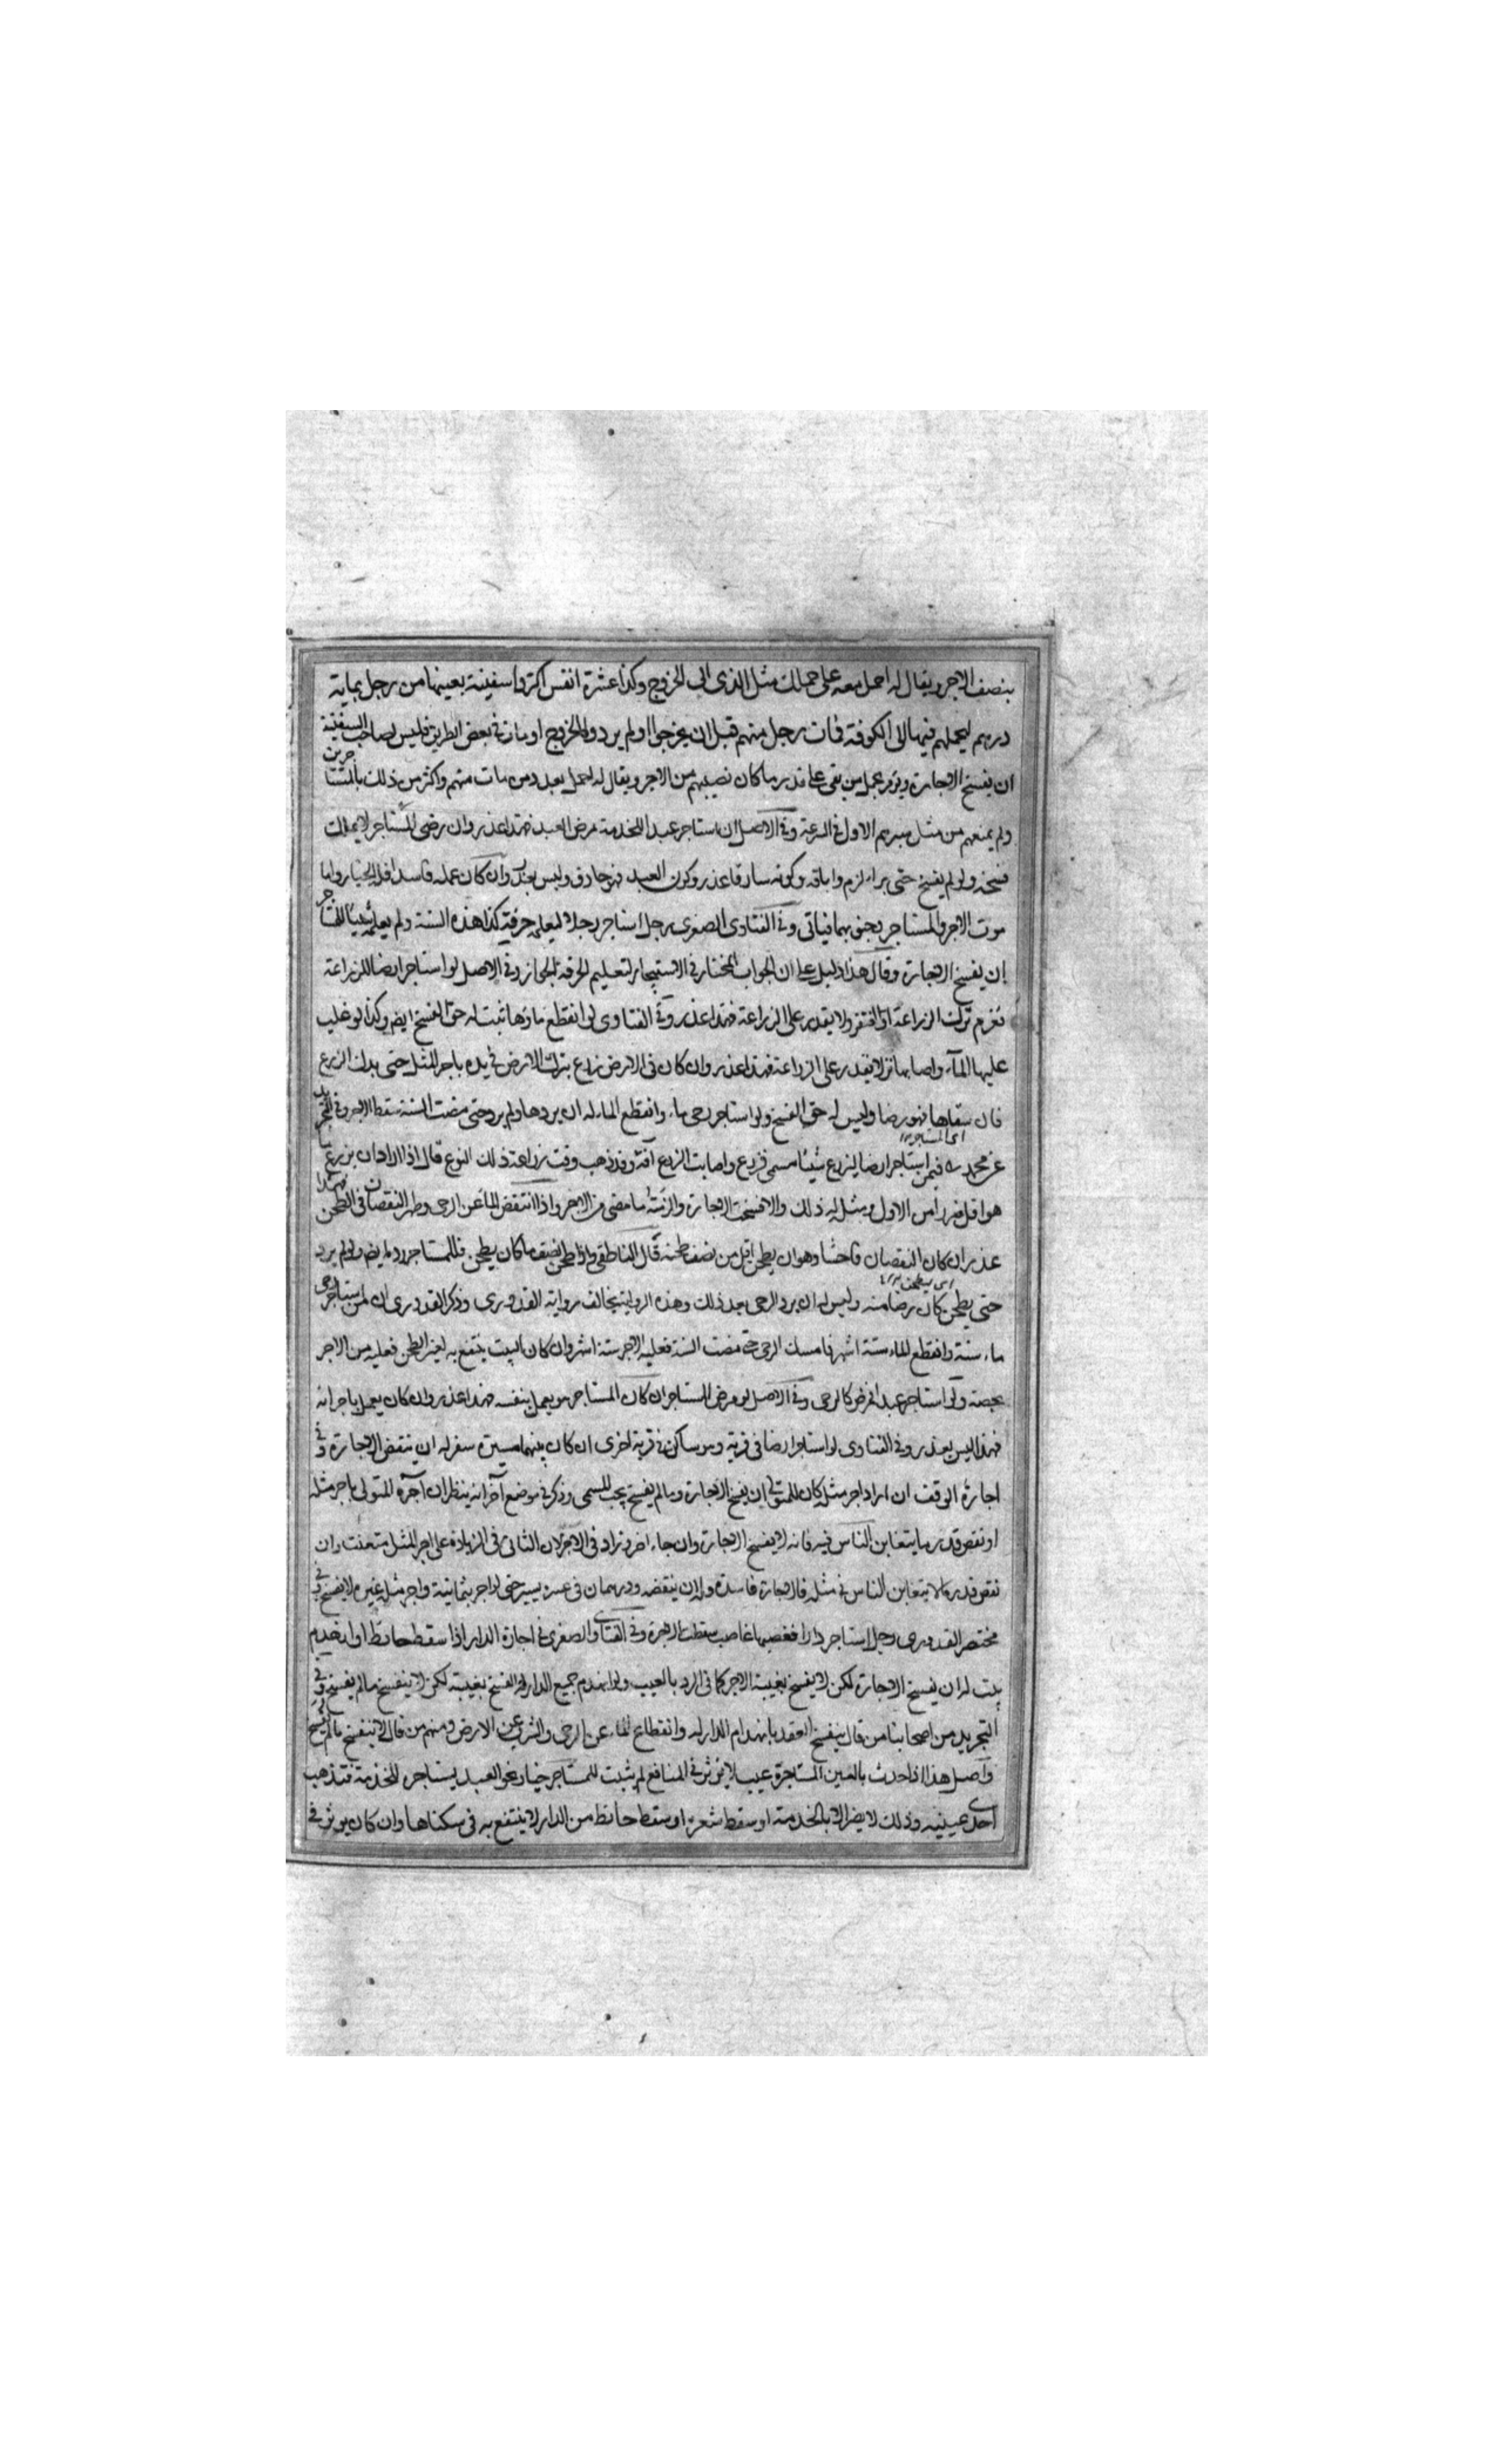 بنصف الاجر ويقال له احمل معه على حملك مثل الذى ابى الخروج وكذا عشرة انفس اكتروا سفينة بعينها من رجل بماية
درهم ليحملهم فيها الى الكوفة فمات رجل منهم قبل ان يخرجوا او لم يردوا الخروج او مات فى بعض الطريق فليس لصاحب السفينة
ان يفسخ الاجارة ويؤمر بحمل من بقى على قدر ما كان نصيبهم من الاجر ويقال له احمل بعدد من مات منهم واكثر من ذلك بالمستاجرين
ولم يمنعهم من مثل سيرهم الاول فى السرعة وفى الاصل ان استاجر عبدا للخدمة مرض العبد فهذا عذر وان رضى المستاجر لا يملك
فسخه ولو لم يفسخ حتى براء لزم واباقه وكونه سارقا عذر وكون العبد غير حاذق وليس بعذر وان كان عمله فاسدا فله الخيار واما
موت الاجر والمستاجر يجئ بهما فياتى وفى الفتاوى الصغرى رجل استاجر رجلا ليعلمه حرفة كذا هذه السنة ولم يعلمه شيئا للمستاجر
ان يفسخ الاجارة وقال هذا دليل على ان الجواب المختار فى الاستيجار لتعليم الحرفة الجواز وفى الاصل لو استاجر ارضا للزراعة
فعزم ترك الزراعة او افتقر ولا يقدر على الزراعة فهذا عذر وفى الفتاوى لو انقطع ماؤها ثبت له حق الفسخ ايضا وكذا لو غلب
عليها الماء واصابها نز لا يقدر على الزراعة فهذا عذر وان كان فى الارض زرع يترك الارض فى يده باجر المثل حتى يدرك الزرع
فان سقاها فهو رضا وليس له حق الفسخ ولو استاجر رحى ماء وانقطع الماء له ان يردها ولم يرد حتى مضت السنة سقط الاجر وفى التجريد
عن محمد ره فيمن استاجر ارضا ليزرع شيئا مسمى فزرع واصابت الزرع آفة وقد ذهب وقت زراعة ذلك النوع قال اذا اراد ان يزرع ما
هو اقل ضررا من الاول ومثله له ذلك والا فسخت الاجارة والزمته ما مضى من الاجر واذا انتقص الماء عن الرحى وظهر النقصان فى الطحن فهذا
عذر ان كان النقصان فاحشا وهو ان يطحن اقل من نصف طحنه قال الناطفى ولو طحن نصف ما كان يطحن فللمستاجر رد ايضا ولو لم يرد
حتى يطحن كان رضا منه وليس له ان يرد الرحى بعد ذلك وهذه الرواية يخالف رواية القدورى وذكر القدورى ان لمن استاجر رحى
ماء سنة وانقطع الماء ستة اشهر فامسك الرحى حتى مضت السنة فعليه الاجر ستة اشهر وان كان البيت ينتفع به لغير الطحن فعليه من الاجر
بحصته ولو استاجر عبدا فمرض كالرحى وفى الاصل لو مرض المستاجر ان كان المستاجر هو يعمل بنفسه فهذا عذر وان كان يعمل باجرائه
فهذا ليس بعذر وفى الفتاوى لو استاجر ارضا فى قرية وهو ساكن فى قرية اخرى ان كان بينهما مسيرة سفر له ان ينقض الاجارة وفى
اجارة الوقف ان ازداد اجر مثله كان للمتولى ان يفسخ الاجارة وما لم يفسخ يجب المسمى وذكر فى موضع آخر انه ينظر ان آجره المتولى باجر مثله
او نقص قدر ما يتغابن الناس فيه فانه لا يفسخ الاجارة وان جاء اخر وزاد فى الاجر لان الثانى فى الزيادة على اجر المثل متعنت وان
نقص قدر ما لا يتغابن الناس فى مثله فالاجارة فاسدة وله ان ينقضه ودرهمان فى عشرة يسير حتى لو اجر بثمانية واجر مثله عشرة لا يفسخ وفى
مختصر القدورى رجل استاجر دارا فغصبها غاصب سقطت الاجرة وفى الفتاوى الصغرى فى اجارة الدار اذا سقط حائط او انهدم
بيت له ان يفسخ الاجارة لكن لا يفسخ بغيبة الاجر كما فى الرد بالعيب ولو انهدم جميع الدار فله الفسخ بغيبته لكن لا ينفسخ ما لم يفسخ وفى
التجريد من اصحابنا من قال ينفسخ العقد بانهدام الدار له وانقطاع الماء عن الرحى والشرب عن الارض ومنهم من قال لا ينفسخ ما لم يفسخ
واصل هذا اذا حدث بالعين المستاجرة عيب لا يؤثر فى المنافع لم يثبت للمستاجر خيار نحو العبد يستاجره للخدمة فتذهب
احدى عينيه وذلك لا يضر الا بالخدمة او سقط شعره او سقط حائط من الدار لا ينتفع به فى سكناها وان كان يوثر فى